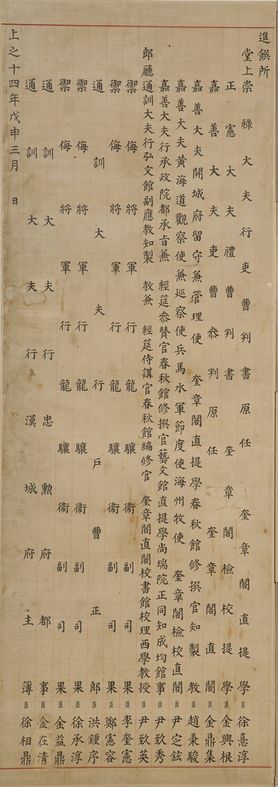 進饌所
堂上崇祿大夫行吏曹判書原任 奎章閣直提學臣徐憙淳
正憲大夫禮曹判書 奎章閣檢校提學臣金興根
嘉善大夫吏曹參判原任 奎章閣直閣臣金鼎集
嘉善大夫開城府留守兼管理使 奎章閣直提學春秋館修撰官知製教臣趙秉駿
嘉善大夫黃海道觀察使兼巡察使兵馬水軍節度使海州牧使 奎章閣檢校直閣臣尹定鉉
嘉善大夫行承政院都承旨兼 經筵參贊官春秋館修撰官藝文館直提學尚瑞院正同知成均館事臣尹致秀
郎廳通訓大夫行弘文館副應教知製教兼 經筵侍講官春秋館編修官 奎章閣直閣校書館校理西學教授臣尹致英
禦侮將軍行龍驤衛副司果臣李奎憲
禦侮將軍行龍驤衛副司果臣鄭憲容
通訓大夫行戶曹正郎臣洪鍾序
禦侮將軍行龍驤衛副司果臣徐承淳
禦侮將軍行龍驤衛副司果臣金益鼎
通訓大夫行忠勳府都事臣金在清
通訓大夫行漢城府主簿臣徐相鼎
上之十四年戊申三月 日